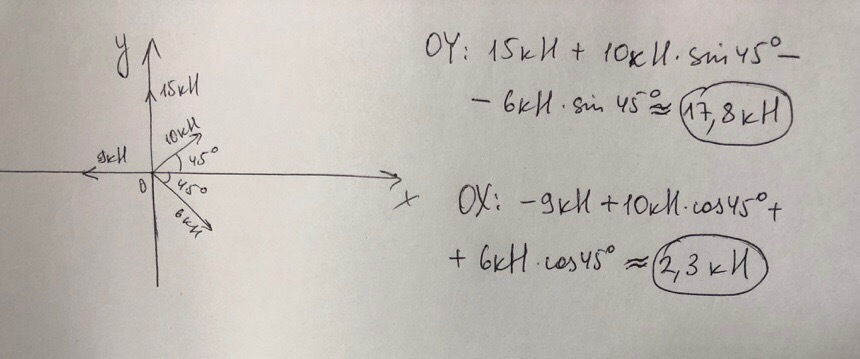 y
15кН
10кН
9кН
45°
0
45°
x
6кН
OY: 15кН + 10кН · sin 45° –
– 6кН · sin 45° ≈ 17,8 кН
OX: –9кН + 10кН · cos 45° +
+ 6кН · cos 45° ≈ 2,3 кН